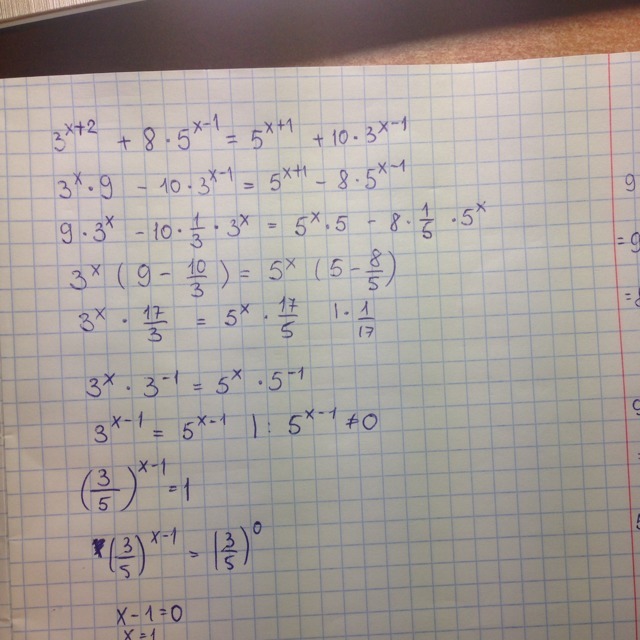 3^{x+2} + 8 · 5^{x-1} = 5^{x+1} + 10 · 3^{x-1}
3^x · 9 - 10 · 3^{x-1} = 5^{x+1} - 8 · 5^{x-1}
9 · 3^x - 10 · \frac{1}{3} · 3^x = 5^x · 5 - 8 · \frac{1}{5} · 5^x
3^x (9 - \frac{10}{3}) = 5^x (5 - \frac{8}{5})
3^x · \frac{17}{3} = 5^x · \frac{17}{5} | · \frac{1}{17}
3^x · 3^{-1} = 5^x · 5^{-1}
3^{x-1} = 5^{x-1} | : 5^{x-1} ≠ 0
(\frac{3}{5})^{x-1} = 1
(\frac{3}{5})^{x-1} = (\frac{3}{5})^0
x - 1 = 0
x = 1
9
= 9